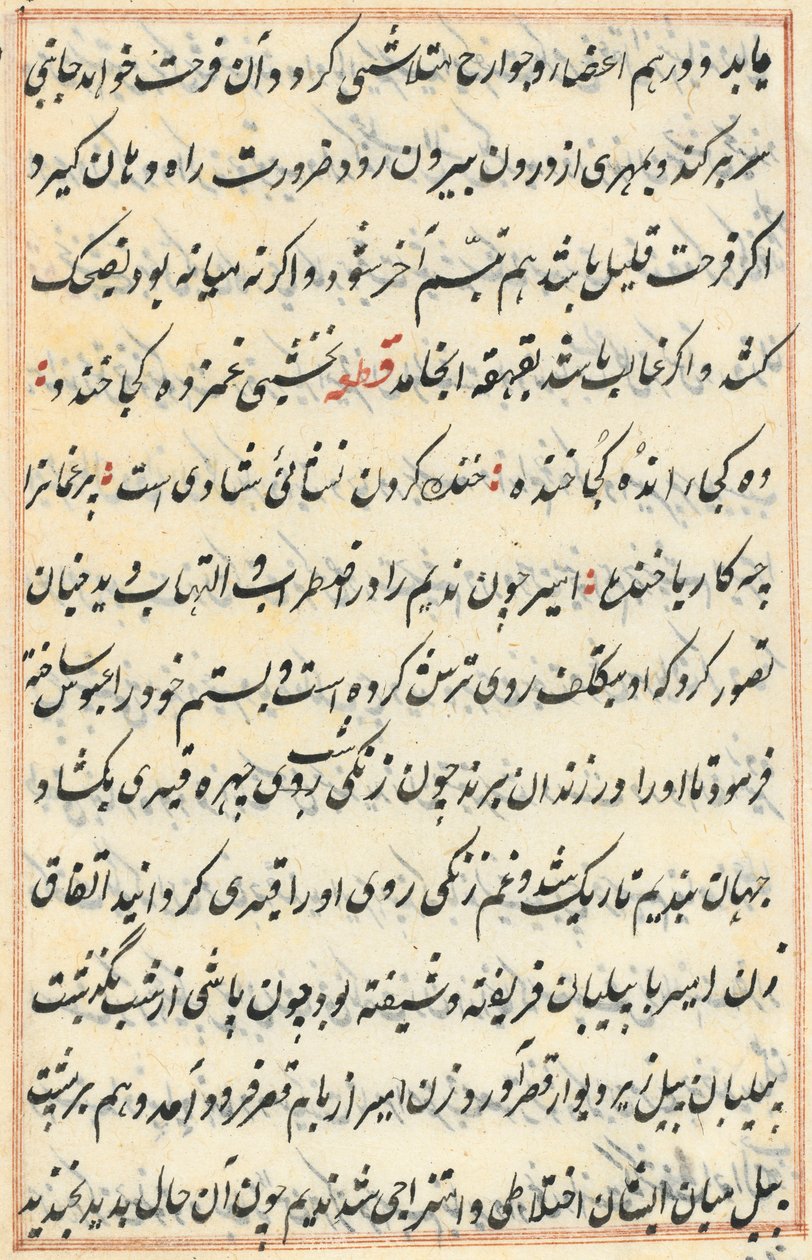 یابد و در هم اعضا و جوارح متلاشی کردد و آن فرحت خواهد جانبی
سر بر کند و بمهری از درون بیرون رود ضرورت راه دهان کیرد
اکر فرحت قلیل باشد هم تبسّم آخر شود و اکر نه میانه بود بضحک
کشد و اکر غالب باشد بقهقهه انجامد قطعه نخشبی غمزده کجا خندد :
وه کجا اندُه کُجا خنده : خنده کردن نشانیٔ شادی است : پر غمانرا
چه کار با خنده : امیر چون ندیم را در اضطراب و التهاب دید چنان
تصور کرد که او بتکلف روی ترش کرده است و بستم خود را عبوس ساخته
فرمود تا او را در زندان برند چون زنکی شب روی چهره قیری بکشاد
جهان بندیم تاریک شد و غم زنکی روی او را قیری کردانید اتفاق
زن امیر با پیلبان فریفته و شیفته بود چون پاشی از شب بگذشت
پیلبان پیل زیر دیوار قصر آورد و زن امیر از بام قصر فرود آمد و هم بر پشت
پیل میان ایشان اختلاطی و امتزاجی شد ندیم چون آن حال بدید بخندید